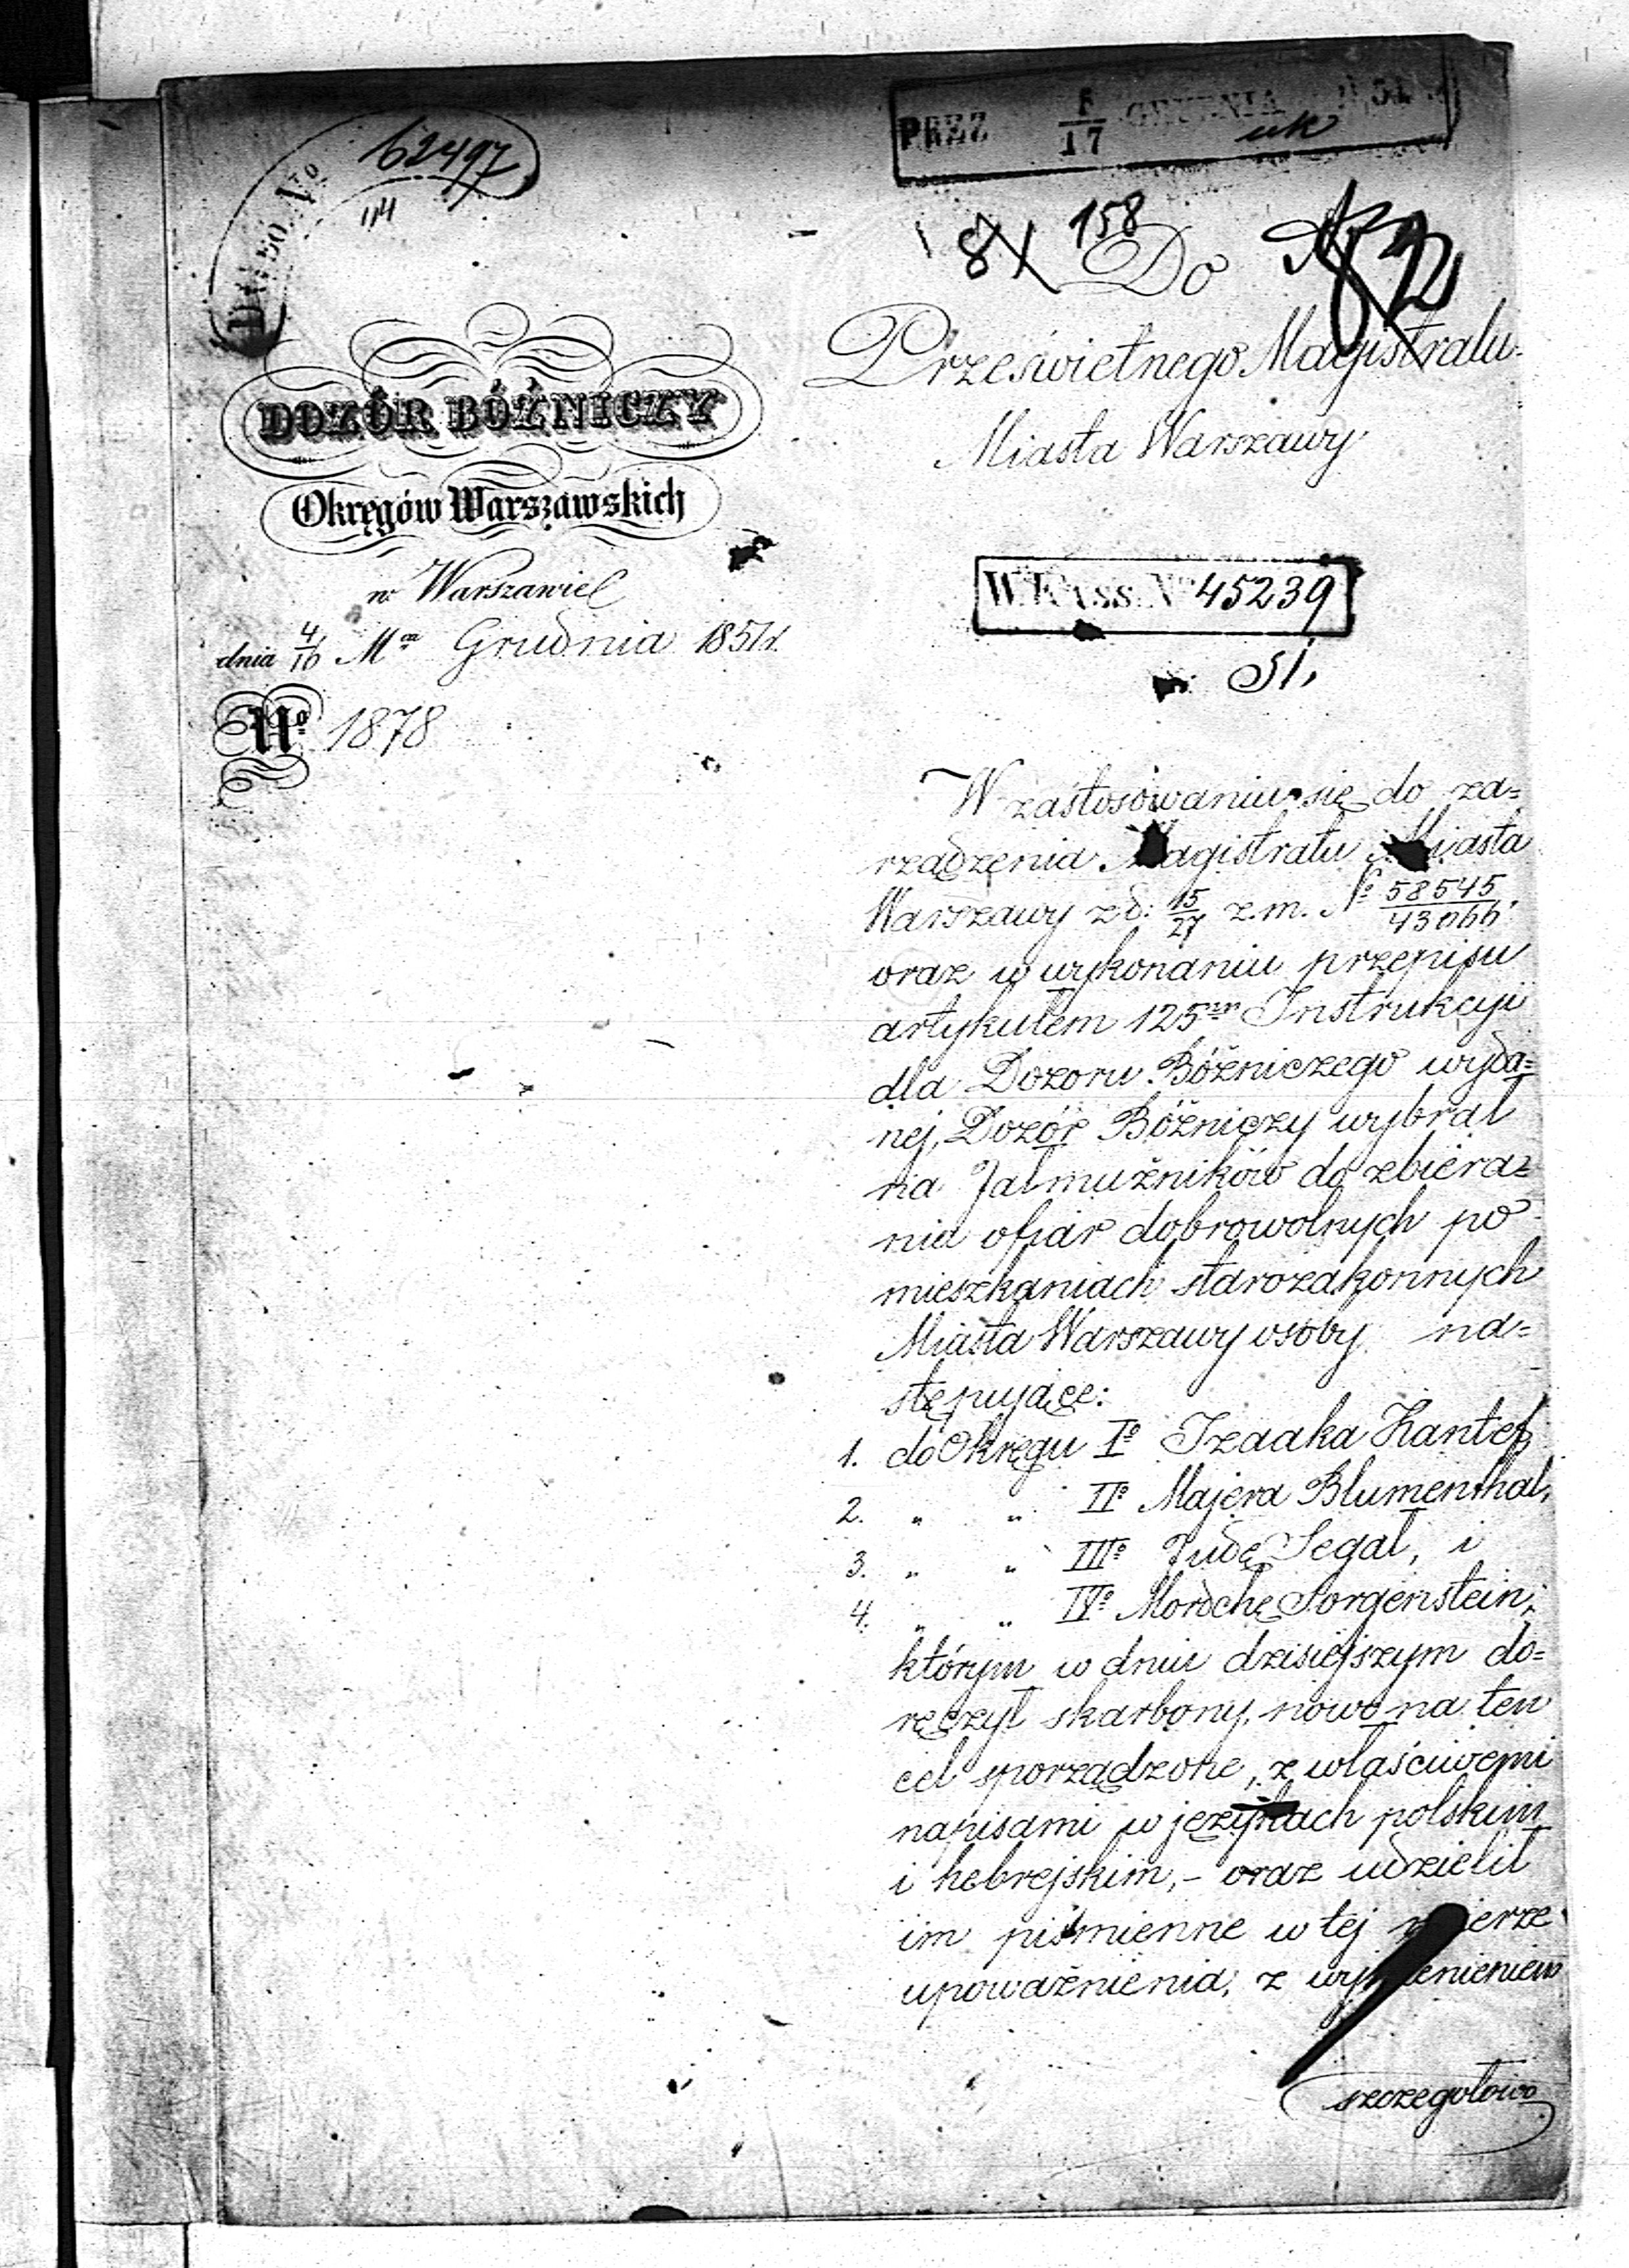 62497
PREZ 5/17 GRUDNIA
158
Do
Prześwietnego Magistratu
Miasta Warszawy
DOZÓR BÓŹNICZY
Okręgów Warszawskich
w Warszawie
dnia 4/16 Mca Grudnia 1851 r.
No 1878
W. Kass. No 45239
51,
W zastosowaniu się do za=
rządzenia Magistratu Miasta
Warszawy z d: 15/27 z. m. No 58545/43066.
oraz w wykonaniu przepisu
artykułem 125ym Instrukcyi
dla Dozoru Bóźniczego wyda=
nej, Dozór Bóźniczy wybrał
na Jałmużników do zbiera=
nia ofiar dobrowolnych po
mieszkaniach starozakonnych
Miasta Warszawy osoby na=
stępujące:
1. do Okręgu Io Izaaka Kantef
2. " " IIo Majera Blumenthal,
3. " " IIIo Judę Segał, i
4. " " IVo Mordchę Sorgenstein,
którym w dniu dzisiejszym do=
ręczył skarbony, nowo na ten
cel sporządzone, z właściwemi
napisami w językach polskim
i hebrejskim, - oraz udzielił
im piśmienne w tej mierze
upoważnienia, z wymienieniem
szczegółowo